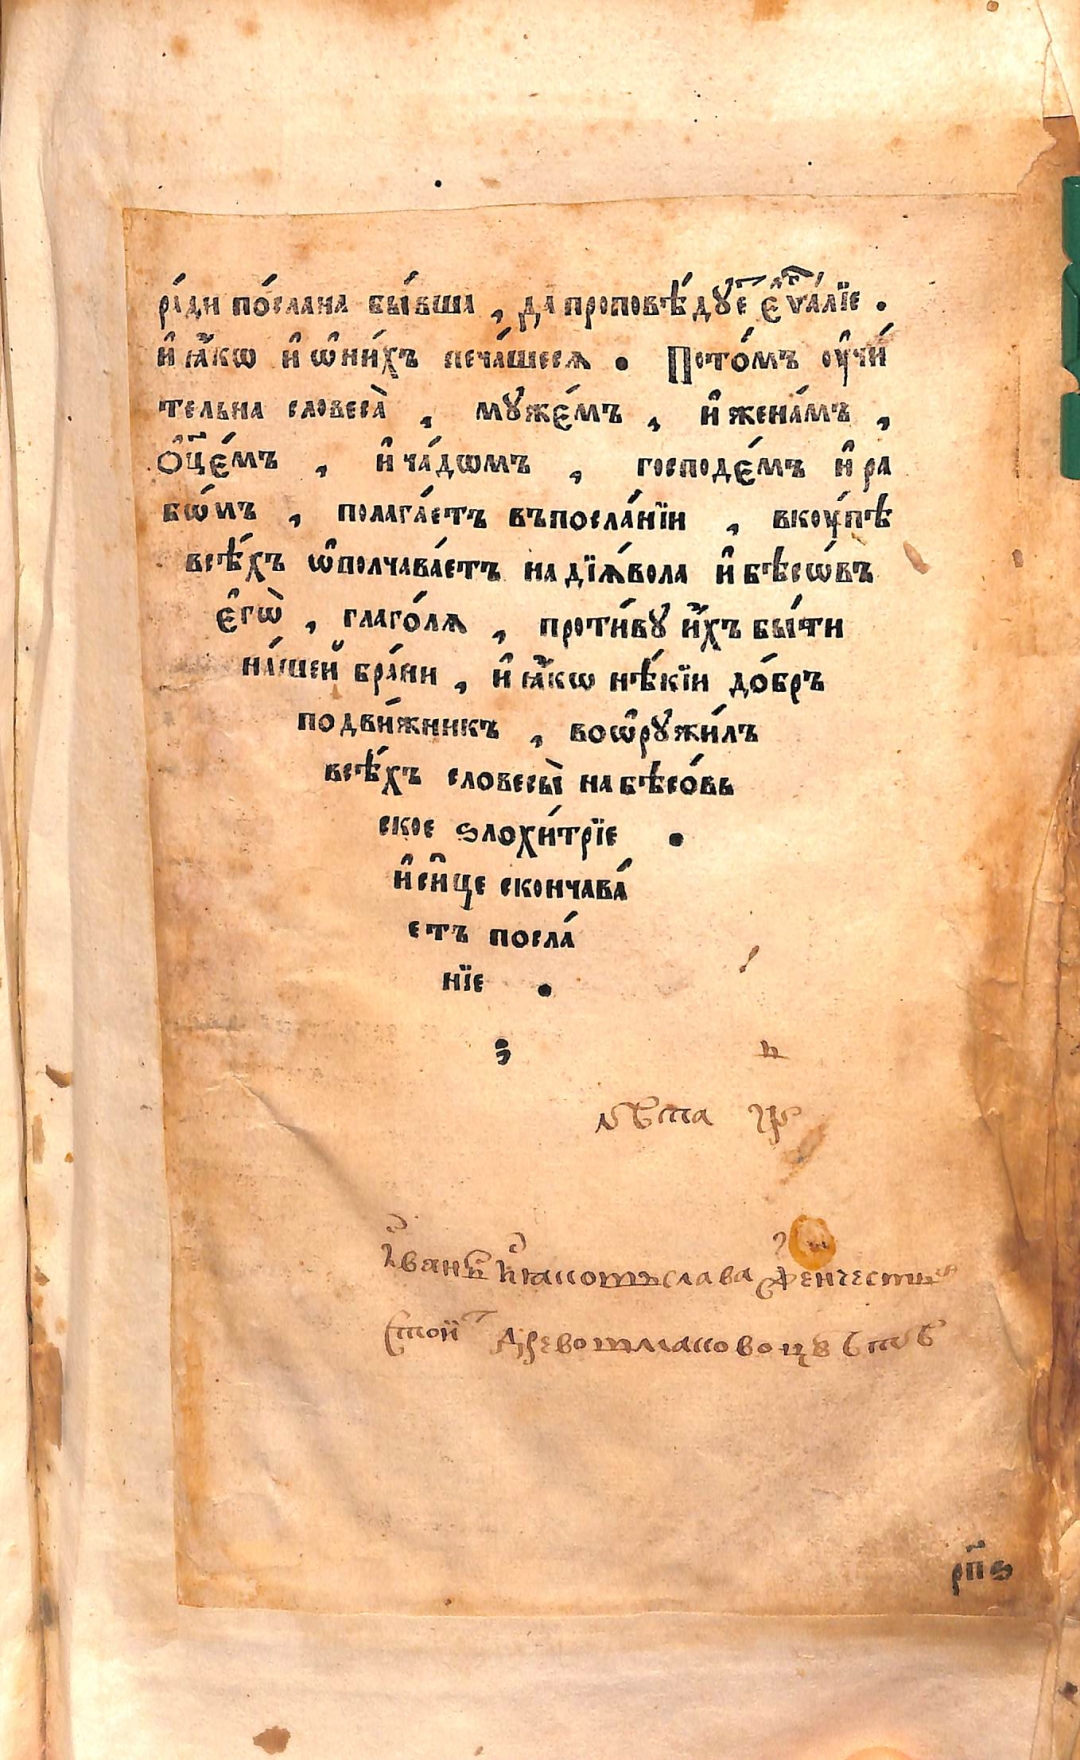 ра́ди по́слана бы́вша , да проповѣ́дꙋе҆ є҆ѵⷢ҇а́лїе .
и҆ ꙗ҆́кѡ и҆ ѡ҆ ни́хъ печа́шеся . Пото́мъ ᲂу҆чи́
тельна словеса̀ , мꙋже́мъ , и҆ жена́мъ ,
ѻ҆ц҃е́мъ , и҆ ча́дѡмъ , господе́мъ и҆ ра
бѡ́мъ , полага́етъ въпосла́нїи , вкᲂу́пѣ
всѣ́хъ ѡ҆полчава́етъ на дїѧ́вола и҆ бѣсѡ́въ
є҆гѡ̀ , глаго́лѧ , проти́вꙋ и҆́хъ бы́ти
на́шей бра́ни , и҆ ꙗ҆́кѡ нѣ́кїи до́бръ
подви́жникъ , воѡ҆рꙋжи́лъ
всѣ́хъ словесы̀ на бѣсо́вь
ское ѕлохи́трїе .
и҆ си́це скончава́
етъ посла́
нїе .
рп҃ѕ